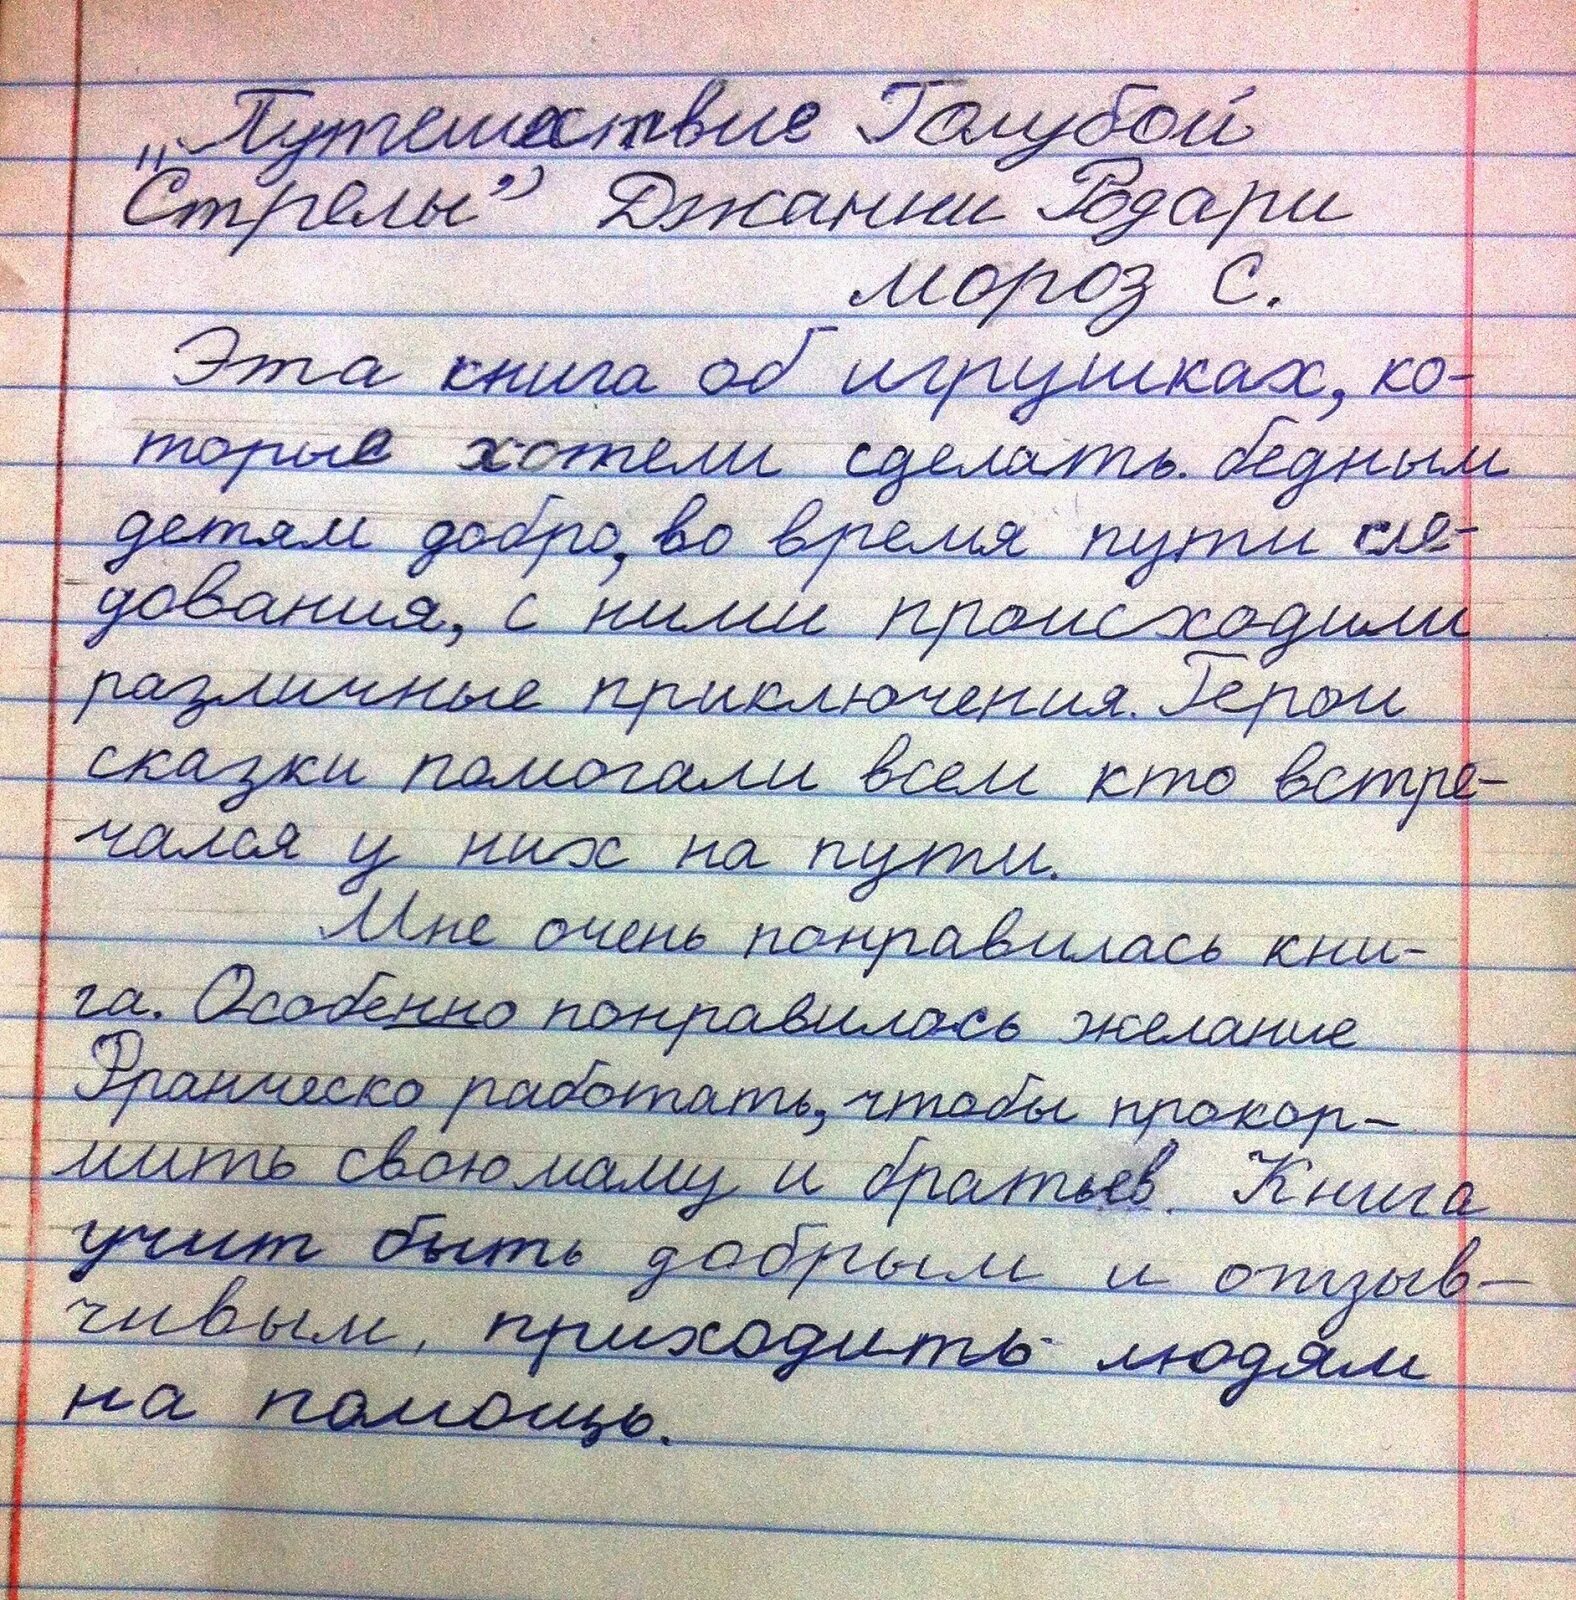 „Путешествие Голубой
Стрелы” Джанни Родари
Мороз С.
Эта книга об игрушках, ко-
торые хотели сделать бедным
детям добро, во время пути сле-
дования, с ними происходили
различные приключения. Герои
сказки помогали всем кто встре-
чался у них на пути.
Мне очень понравилась кни-
га. Особенно понравилось желание
Франческо работать, чтобы прокор-
мить свою маму и братьев. Книга
учит быть добрым и отзыв-
чивым, приходить людям
на помощь.